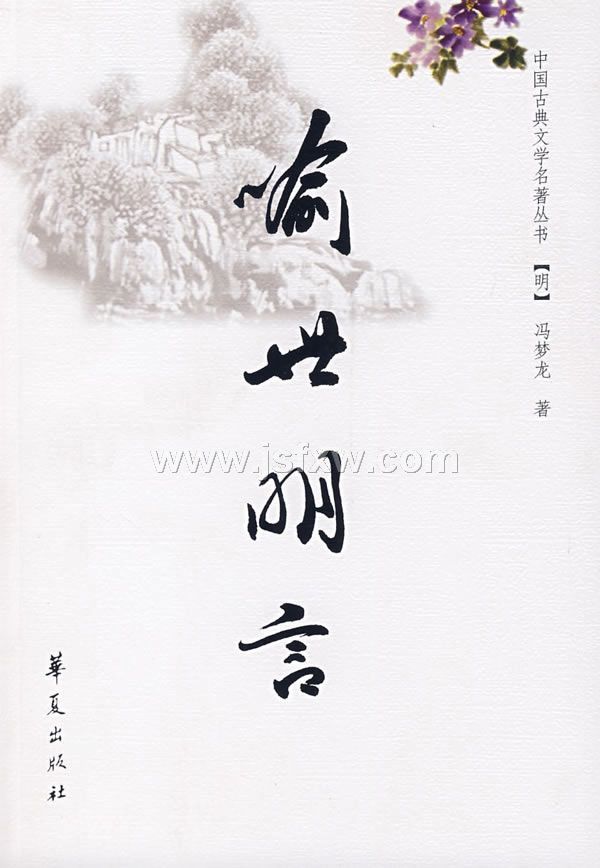 中国古典文学名著丛书 【明】 冯梦龙 著
喻世明言
www.jsfxw.com
華夏出版社